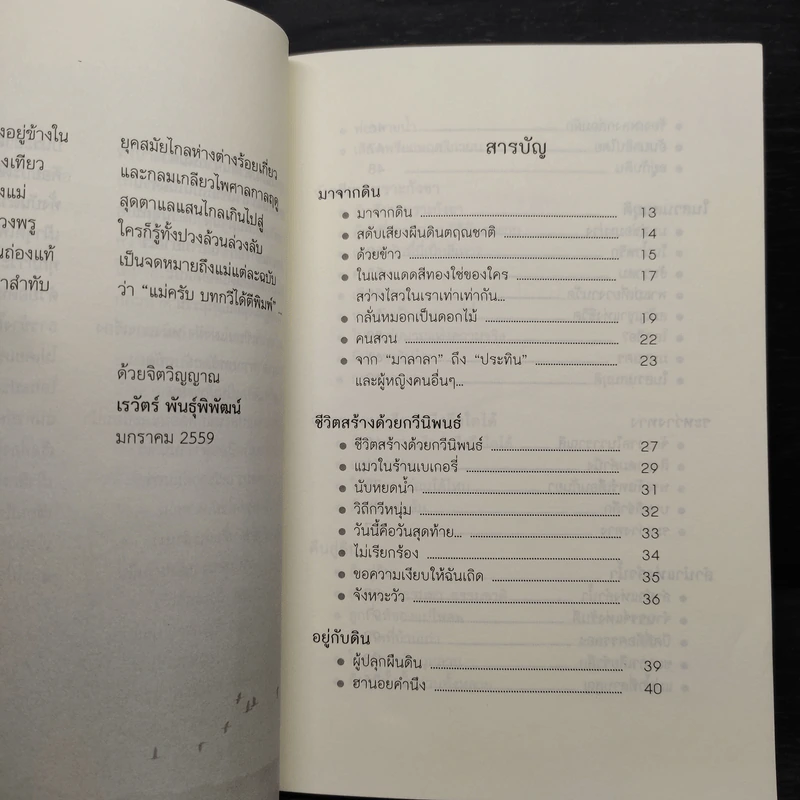 งอยู่ข้างใน
งเทียว
งแม่
วงพรู
นถ่องแท้
าสำทับ
ยุคสมัยไกลห่างต่างร้อยเกี่ยว
และกลมเกลียวไพศาลกาลฤดู
สุดตาแลแสนไกลเกินไปสู่
ใครก็รู้ทั้งปวงล้วนล่วงลับ
เป็นจดหมายถึงแม่แต่ละฉบับ
ว่า “แม่ครับ บทกวีได้ตีพิมพ์”
ด้วยจิตวิญญาณ
เรวัตร์ พันธุ์พิพัฒน์
มกราคม 2559
สารบัญ
มาจากดิน
● มาจากดิน 13
● สดับเสียงผืนดินตฤณชาติ 14
● ด้วยข้าว 15
● ในแสงแดดสีทองใช่ของใคร 17
สว่างไสวในเราเท่าเท่ากัน...
● กลั่นหมอกเป็นดอกไม้ 19
● คนสวน 22
● จาก “มาลาลา” ถึง “ประทิน” 23
และผู้หญิงคนอื่นๆ...
ชีวิตสร้างด้วยกวีนิพนธ์
● ชีวิตสร้างด้วยกวีนิพนธ์ 27
● แมวในร้านเบเกอรี่ 29
● นับหยดน้ำ 31
● วิถีกวีหนุ่ม 32
● วันนี้คือวันสุดท้าย... 33
● ไม่เรียกร้อง 34
● ขอความเงียบให้ฉันเถิด 35
● จังหวะวัว 36
อยู่กับดิน
● ผู้ปลุกผืนดิน 39
● ฮานอยคำนึง 40